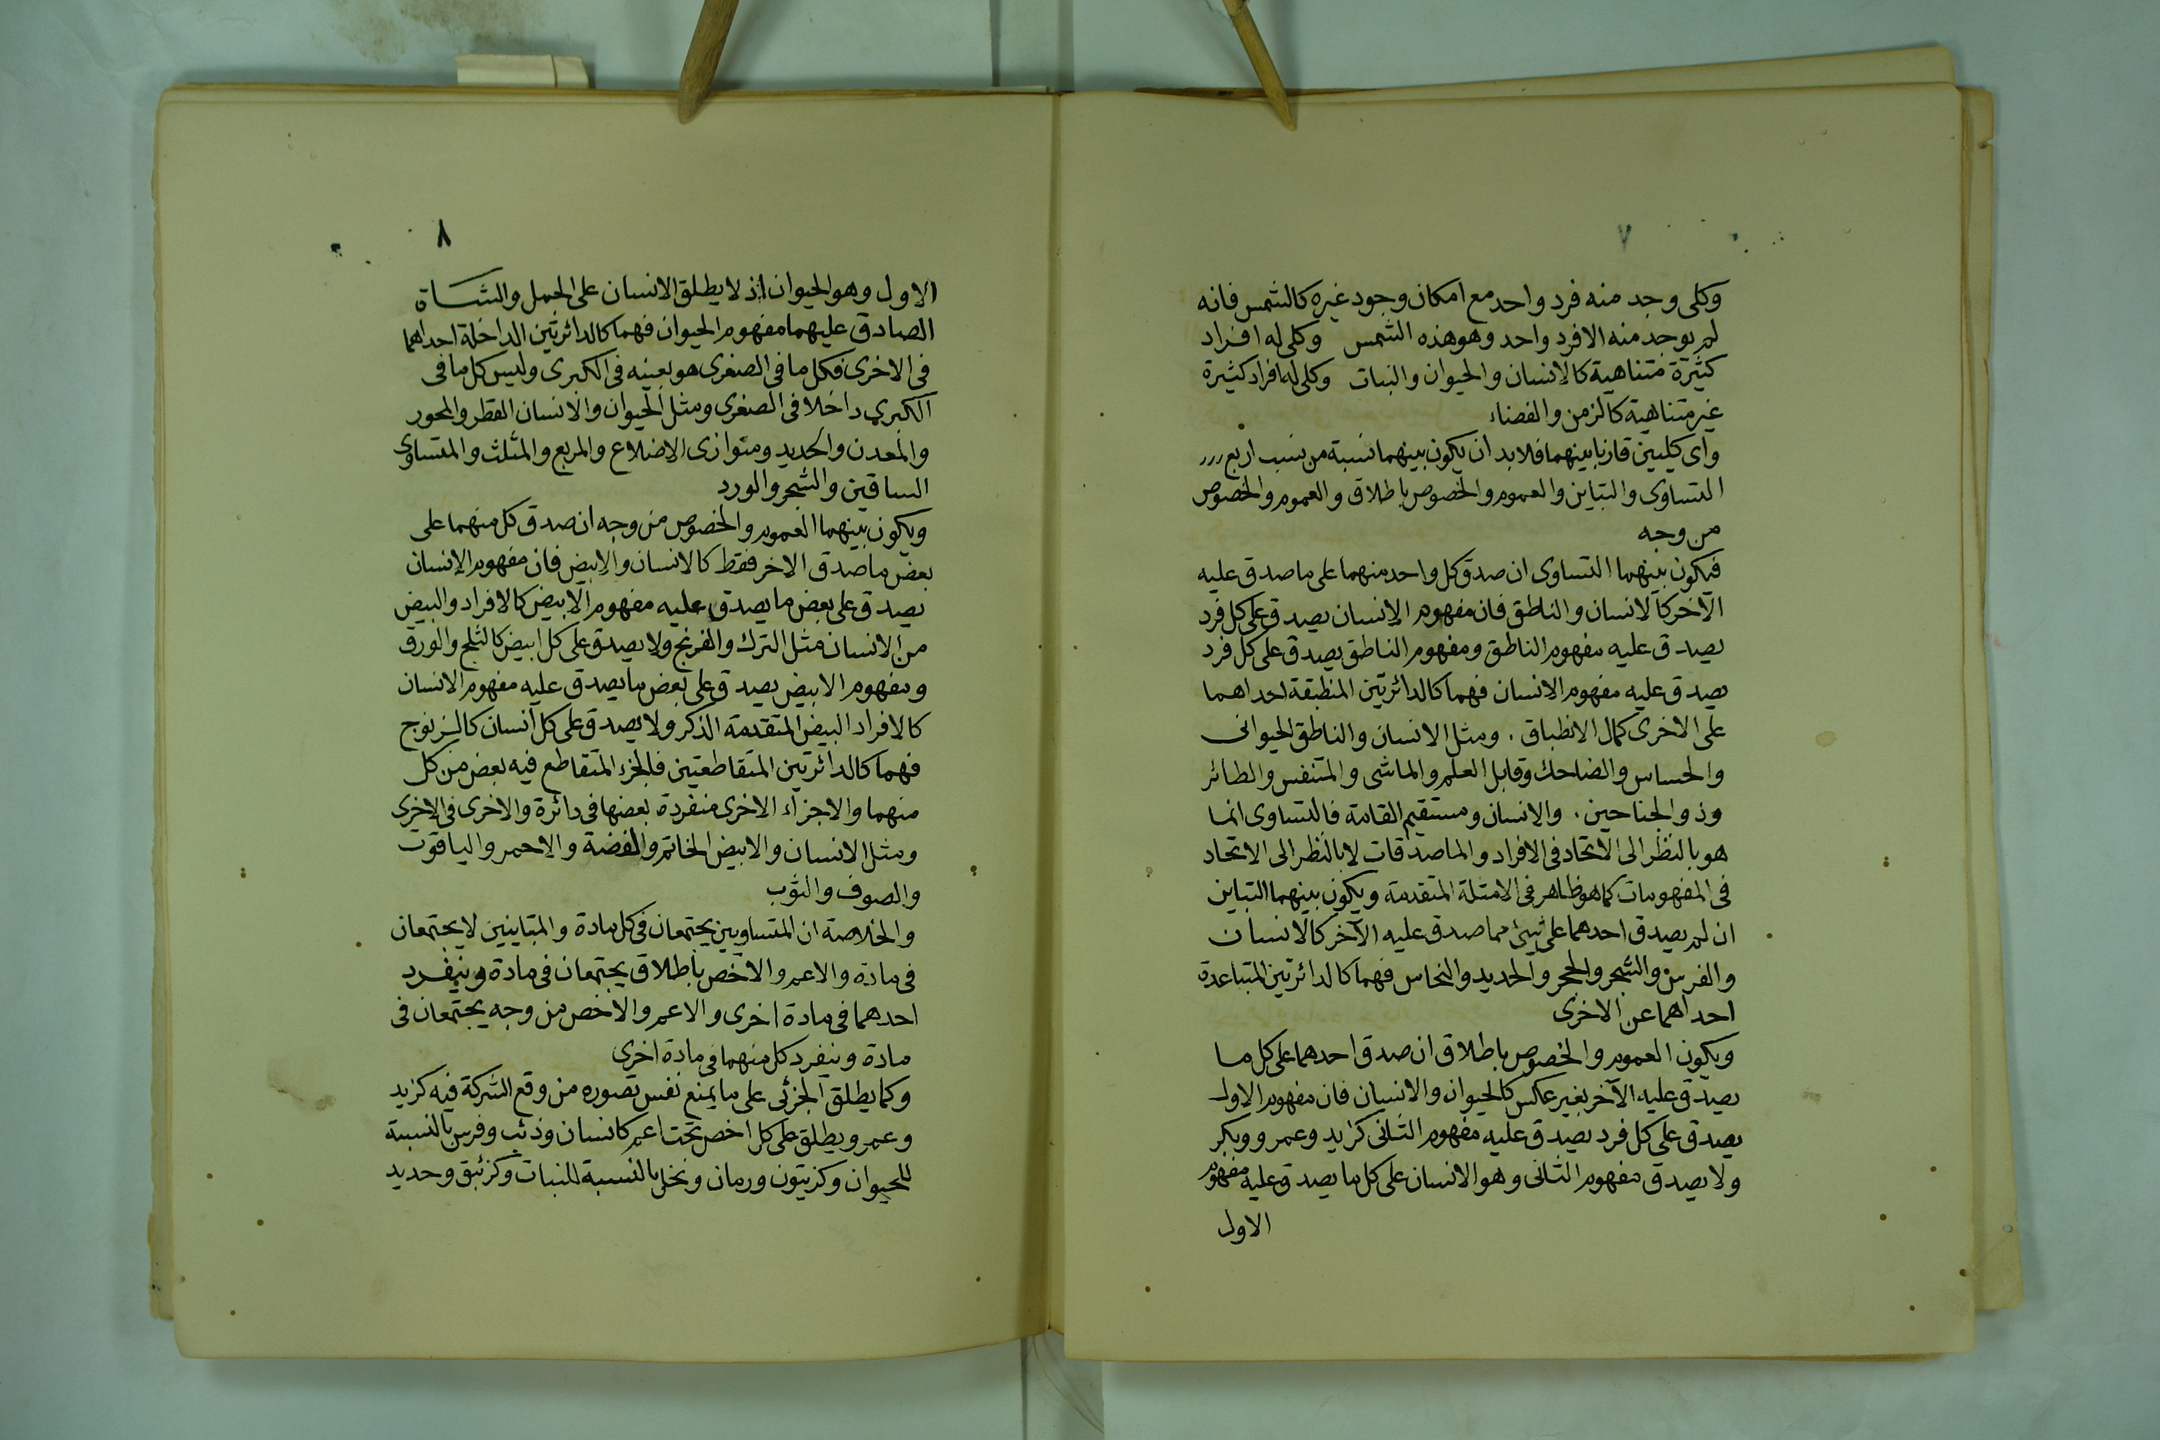 ٧
وكلى وجد منه فرد واحد مع امكان وجود غيره كالشمس فانه
لم يوجد منه الا فرد واحد وهو هذه الشمس وكلى له افراد
كثيرة متناهية كالانسان والحيوان والنبات وكلى له افراد كثيرة
غير متناهية كالزمن والفضاء
واى كليين قارنا بينهما فلا بد ان يكون بينهما نسبة من نسب اربع
التساوى والتباين والعموم والخصوص باطلاق والعموم والخصوص
من وجه
فيكون بينهما التساوى ان صدق كل واحد منهما على ما صدق عليه
الآخر كالانسان والناطق فان مفهوم الانسان يصدق على كل فرد
يصدق عليه مفهوم الناطق ومفهوم الناطق يصدق على كل فرد
يصدق عليه مفهوم الانسان فهما كالدائرتين المنطبقة احداهما
على الاخرى كمال الانطباق . ومثل الانسان والناطق الحيوانى
والحساس والضاحك وقابل العلم والماشى والمتنفس والطائر
وذو الجناحين . والانسان ومستقيم القامة فالتساوى انما
هو بالنظر الى الاتحاد فى الافراد والماصدقات لا بالنظر الى الاتحاد
فى المفهومات كما هو ظاهر فى الامثلة المتقدمة ويكون بينهما التباين
ان لم يصدق احدهما على شئ مما صدق عليه الآخر كالانسان
والفرس والشجر والحجر والحديد والنحاس فهما كالدائرتين المتباعدة
احداهما عن الاخرى
ويكون العموم والخصوص باطلاق ان صدق احدهما على كل ما
يصدق عليه الآخر بغير عكس كالحيوان والانسان فان مفهوم الاول
يصدق على كل فرد يصدق عليه مفهوم الثانى كزيد وعمرو وبكر
ولا يصدق مفهوم الثانى وهو الانسان على كل ما يصدق عليه مفهوم
الاول
٨
الاول وهو الحيوان اذ لا يطلق الانسان على الجمل والشاة
الصادق عليهما مفهوم الحيوان فهما كالدائرتين الداخلة احداهما
فى الاخرى فكل ما فى الصغرى هو بعينه فى الكبرى وليس كل ما فى
الكبرى داخلا فى الصغرى ومثل الحيوان والانسان القطر والمحور
والمعدن والحديد ومتوازى الاضلاع والمربع والمثلث والمتساوى
الساقين والشجر والورد
ويكون بينهما العموم والخصوص من وجه ان صدق كل منهما على
بعض ما صدق الاخر فقط كالانسان والابيض فان مفهوم الانسان
يصدق على بعض ما يصدق عليه مفهوم الابيض كالافراد والبيض
من الانسان مثل الترك والفرنج ولا يصدق على كل ابيض كالثلج والورق
ومفهوم الابيض يصدق على بعض ما يصدق عليه مفهوم الانسان
كالافراد البيض المتقدمة الذكر ولا يصدق على كل انسان كالزنوج
فهما كالدائرتين المتقاطعتين فالجزء المتقاطع فيه بعض من كل
منهما والاجزاء الاخرى منفردة بعضها فى دائرة والاخرى فى الاخرى
ومثل الانسان والابيض الخاتم والفضة والاحمر والياقوت
والصوف والثوب
والخلاصة ان المتساويين يجتمعان فى كل مادة والمتباينين لا يجتمعان
فى مادة والاعم والاخص باطلاق يجتمعان فى مادة وينفرد
احدهما فى مادة اخرى والاعم والاخص من وجه يجتمعان فى
مادة وينفرد كل منهما فى مادة اخرى
وكما يطلق الجزئى على ما يمنع نفس تصوره من وقع الشركة فيه كزيد
وعمرو يطلق على كل اخص تحت اعم كانسان وذئب وفرس بالنسبة
للحيوان وكزيتون ورمان ونخل بالنسبة للنبات وكزئبق وحديد